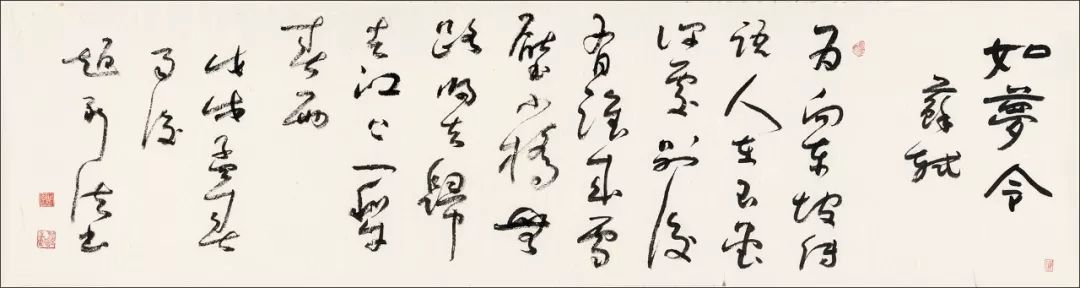 如夢令
蘇軾
为向東坡傳
語人在玉堂
深處別後
有誰来雪
壓小橋無
路歸去歸
去江上一犁
春雨
戊戌孟春
後
趙法書